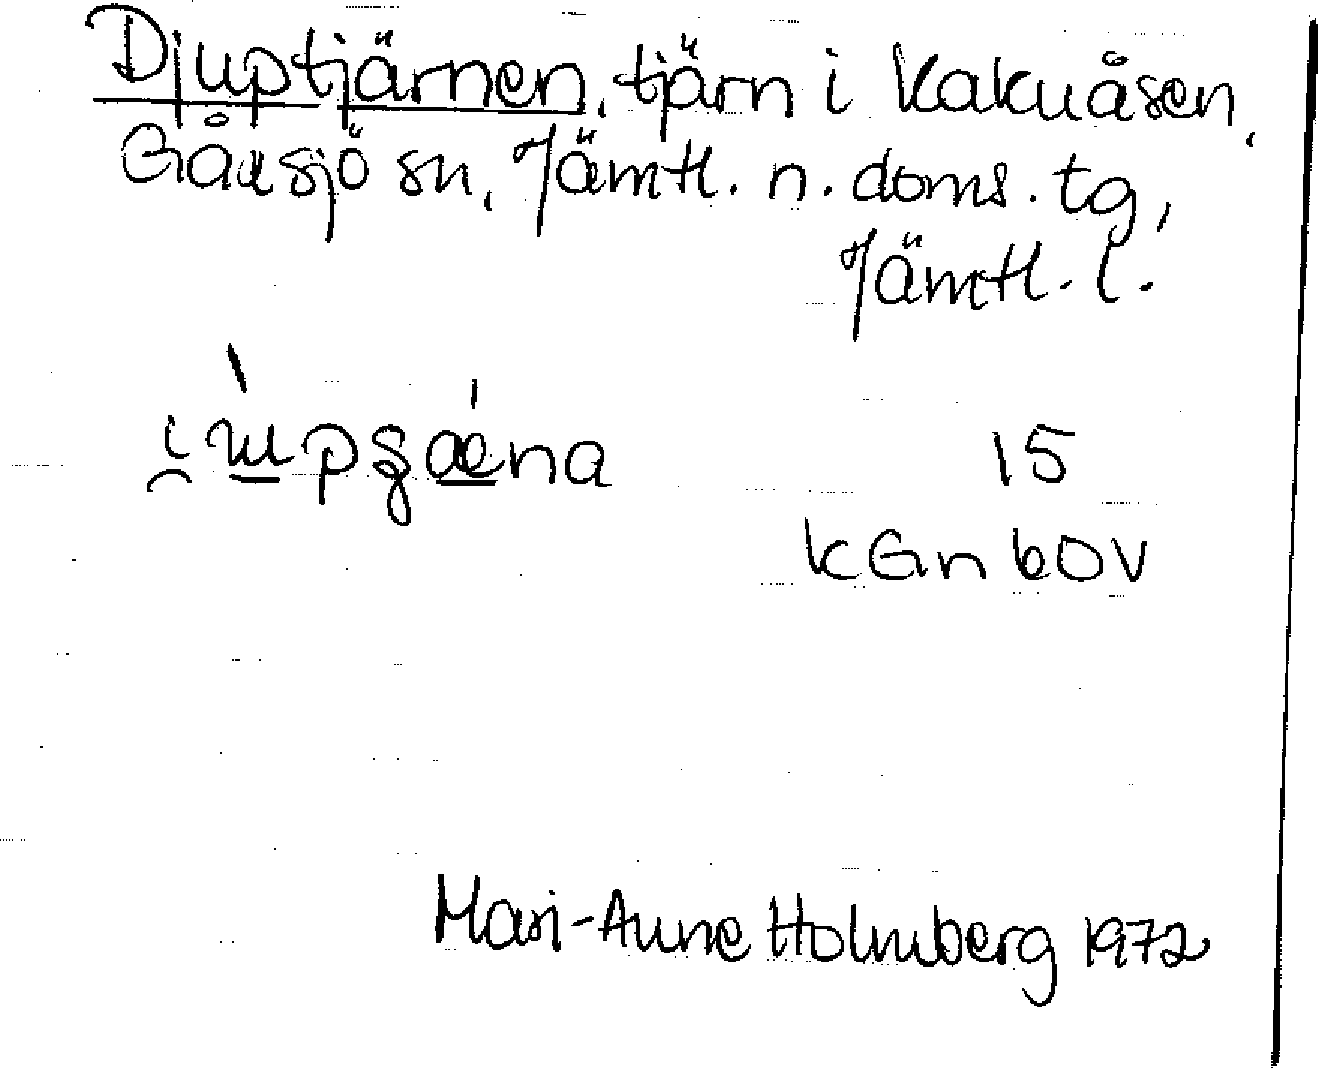 Djuptjärnen, tjärn i Kakuåsen,
Gåxsjö sn, Jämtl. n. doms. tg,
Jämtl. l.
15
KGn bOV
Mari-Anne Holmberg 1972